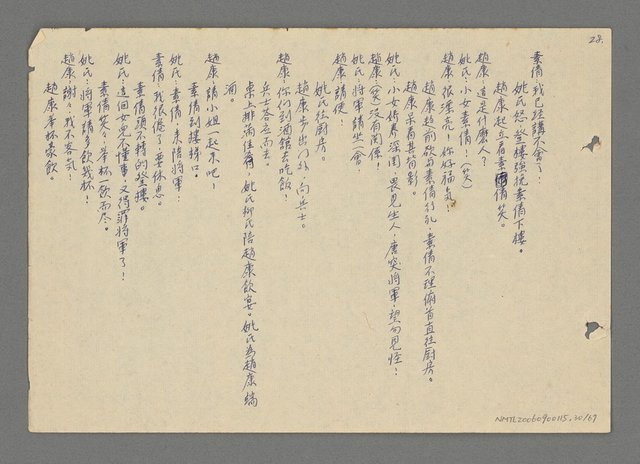 28.
素倩：我已經講不會了！
姚氏怒登樓強挽素倩下樓。
趙康起立看素倩笑。
趙康：這是什麼人？
姚氏：小女素倩！（笑）
趙康：很漂亮！你好福氣！
趙康趨前欲與素倩行礼，素倩不理俯首直往廚房。
趙康呆看其背影。
姚氏：小女倚養深閨，畏見生人，唐突將軍，望勿見怪！
趙康：（笑）沒有關係！
姚氏：將軍請坐一會
趙康：請便！
姚氏往廚房。
趙康步出門外，向兵士。
趙康：你們到酒館去吃飯！
兵士答應而去。
桌上排滿佳肴，姚氏柳氏陪趙康飲宴。姚氏為趙康斟
酒。
趙康：請小姐一起來吧！
素倩到樓梯口。
姚氏：素倩，來陪將軍！
素倩：我很倦了，要休息。
素倩頭不轉的登樓。
姚氏：這個女兒不懂事，又得罪將軍了！
素倩笑々，举杯一飲而尽。
姚氏：將軍請多飲幾杯！
趙康：謝々，我不客气！
趙康举杯豪飲。
NMTL20060900115.30/69